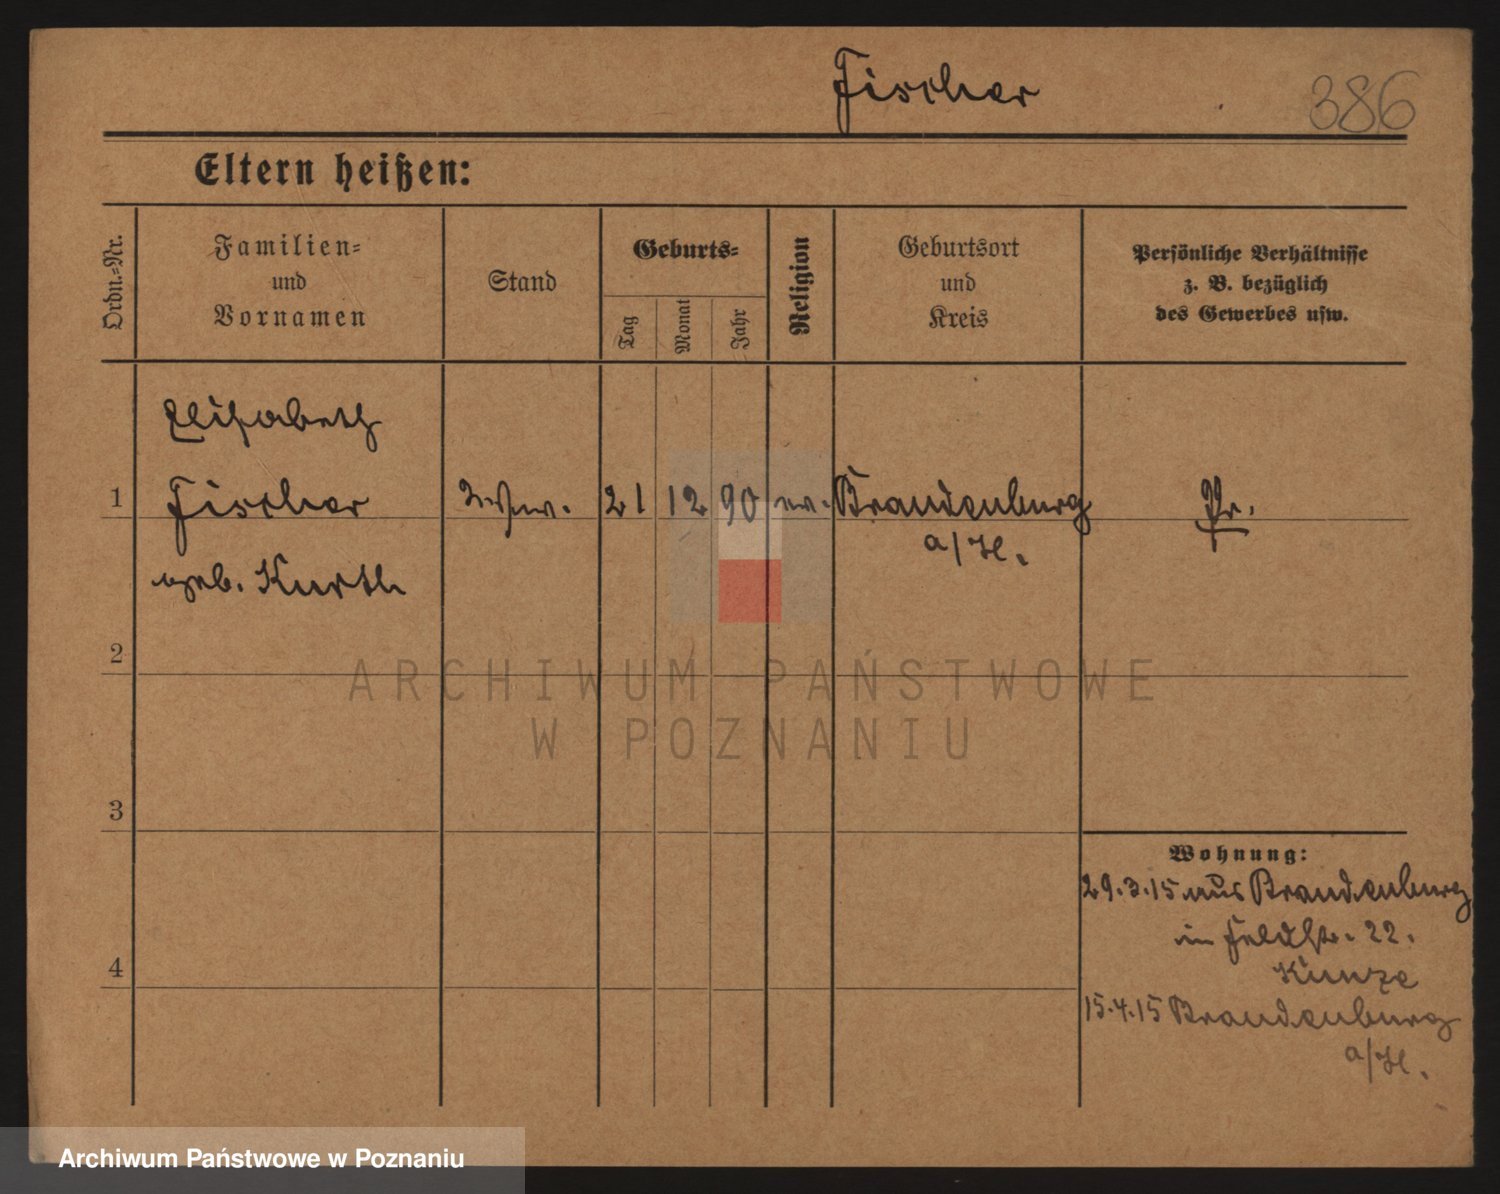 Fischer
386
Eltern heißen:
Ordn.-Nr.
Familien-
und
Vornamen
Stand
Geburts-
Tag
Monat
Jahr
Religion
Geburtsort
und
Kreis
Persönliche Verhältnisse
z. B. bezüglich
des Gewerbes usw.
Elisabeth
1 Fischer 21 12 90 ev. Brandenburg Pr.
a/H.
geb. Kurth
2
3
4
Wohnung:
29.3.15 aus Brandenburg
in Feldstr. 22.
Kunze
15.4.15 Brandenburg
a/H.
ARCHIWUM PAŃSTWOWE
W POZNANIU
Archiwum Państwowe w Poznaniu